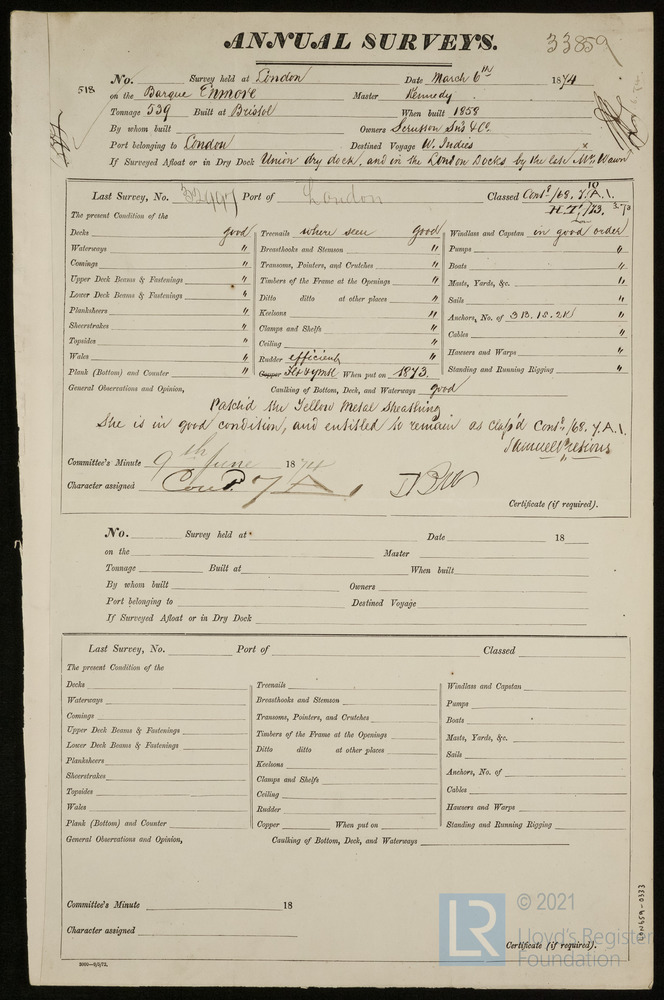 ANNUAL SURVEYS.
33859
No. Survey held at London Date March 6th 1874
518 on the Barque Enmore Master Kennedy
Tonnage 539 Built at Bristol When built 1858
By whom built Owners Scrutton Sns & Co.
Port belonging to London Destined Voyage W. Indies
If Surveyed Afloat or in Dry Dock Union dry dock, and in the London Docks by the late Mr Wawn
Last Survey, No. 32997 Port of London Classed Contd /68. 10 Y. A. 1.
The present Condition of the /73. 3.73
Decks good Treenails where seen good Windlass and Capstan in good order
Waterways " Breasthooks and Stemson " Pumps "
Comings " Transoms, Pointers, and Crutches " Boats "
Upper Deck Beams & Fastenings " Timbers of the Frame at the Openings " Masts, Yards, &c. "
Lower Deck Beams & Fastenings " Ditto ditto at other places " Sails "
Planksheers " Keelsons " Anchors, No. of 3 B. 1 S. 2 K "
Sheerstrakes " Clamps and Shelfs " Cables "
Topsides " Ceiling " Hawsers and Warps "
Wales " Rudder efficient Standing and Running Rigging "
Plank (Bottom) and Counter " Copper When put on 1873
General Observations and Opinion, Caulking of Bottom, Deck, and Waterways good
Patch'd the Yellow Metal Sheathing
She is in good condition, and entitled to remain as class'd Contd /68. Y. A. 1.
Samuel
Committee's Minute 9th June 1874
Character assigned Cond. A 1
Certificate (if required).
No. Survey held at Date 18
on the Master
Tonnage Built at When built
By whom built Owners
Port belonging to Destined Voyage
If Surveyed Afloat or in Dry Dock
Last Survey, No. Port of Classed
The present Condition of the
Decks Treenails Windlass and Capstan
Waterways Breasthooks and Stemson Pumps
Comings Transoms, Pointers, and Crutches Boats
Upper Deck Beams & Fastenings Timbers of the Frame at the Openings Masts, Yards, &c.
Lower Deck Beams & Fastenings Ditto ditto at other places Sails
Planksheers Keelsons Anchors, No. of
Sheerstrakes Clamps and Shelfs Cables
Topsides Ceiling Hawsers and Warps
Wales Rudder Standing and Running Rigging
Plank (Bottom) and Counter Copper When put on
General Observations and Opinion, Caulking of Bottom, Deck, and Waterways
Committee's Minute 18
Character assigned
Certificate (if required).
LR © 2021
Lloyd's Register
Foundation
LON659-0333